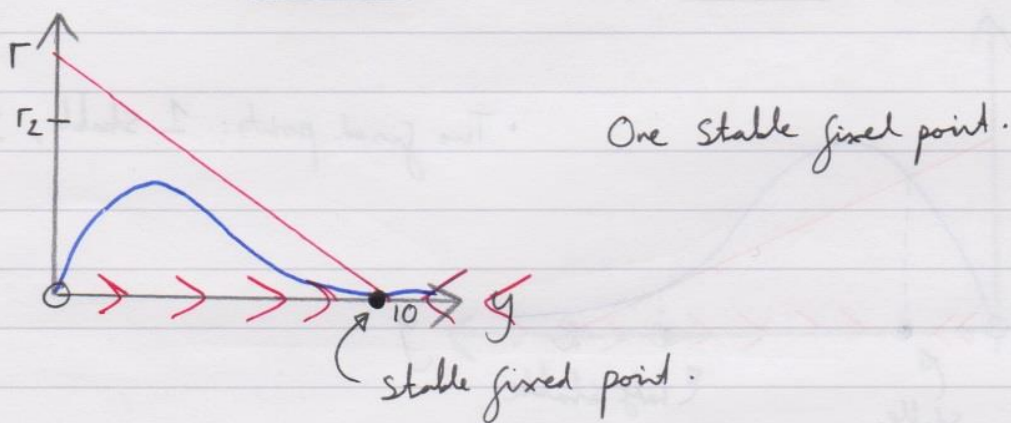 r
r₂
One stable fixed point.
10
y
stable fixed point.